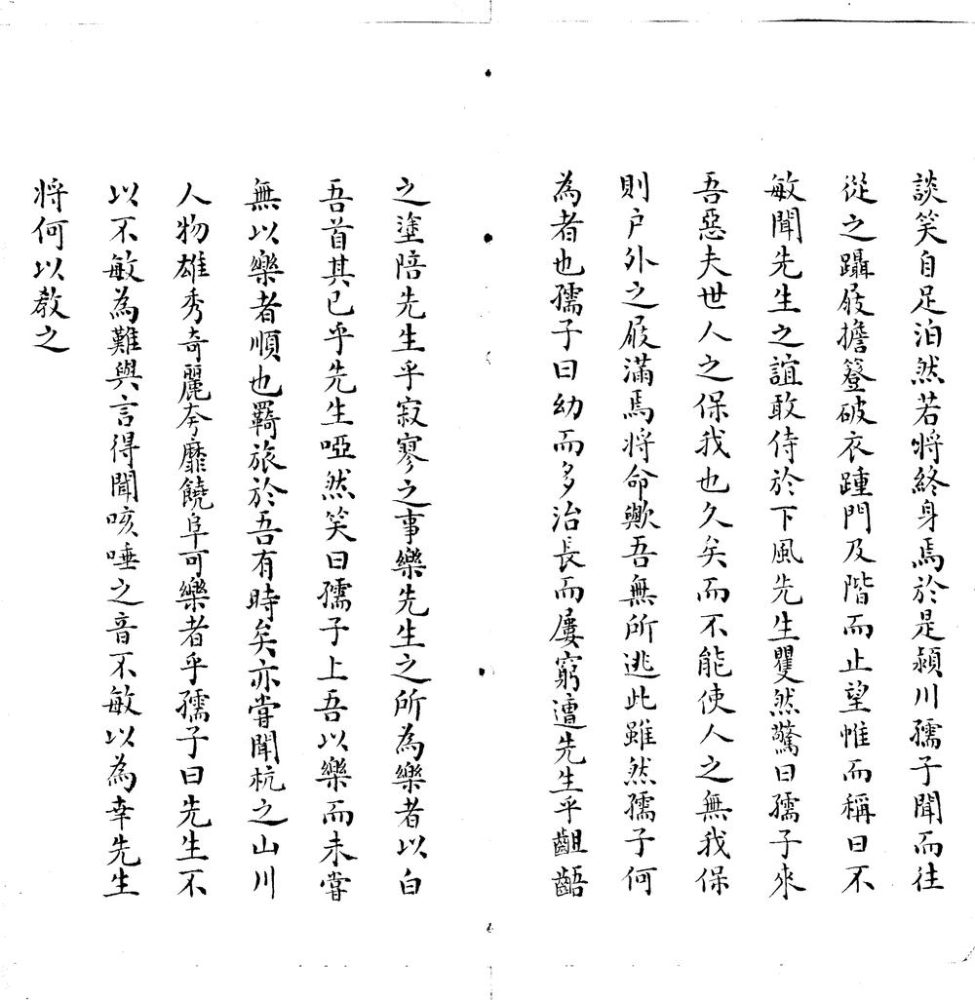 談笑自足泊然若将終身焉於是潁川孺子聞而往
從之躡屐擔簦破衣踵門及階而止望帷而稱曰不
敏聞先生之誼敢侍於下風先生瞿然驚曰孺子来
吾惡夫世人之保我也久矣而不能使人之無我保
則户外之屐滿焉将命歟吾無所逃此雖然孺子何
為者也孺子曰幼而多治長而屢窮遭先生乎齟齬
之塗陪先生乎寂寥之事樂先生之所為樂者以白
吾首其已乎先生啞然笑曰孺子上吾以樂而未嘗
無以樂者順也羇旅於吾有時矣亦嘗聞杭之山川
人物雄秀奇麗夸靡饒阜可樂者乎孺子曰先生不
以不敏為難與言得聞咳唾之音不敏以為幸先生
将何以教之